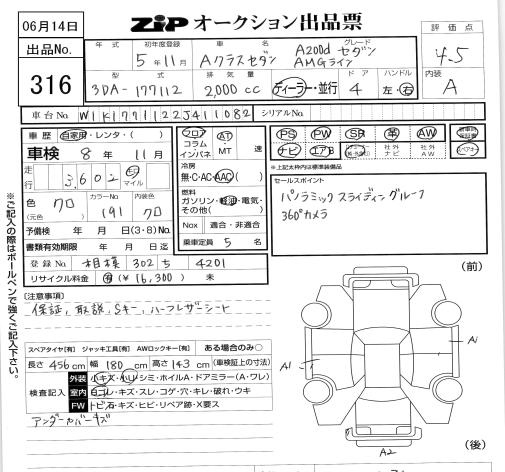 06月14日
ZIP オークション出品票
出品No.
316
年式
初年度登録
5年11月
車名
Aクラスセダン
グレード
A200d セダン
AMGライン
評価点
4.5
内装
A
型式
3DA-177112
排気量
2,000cc
ディーラー・並行
ドア
4
ハンドル
左・右
車台No W1K1771122J411082
シリアルNo.
車歴 自家用・レンタ・( )
車検 8年 11月
走行 3,602 キロ マイル
色(元色) クロ
カラーNo 191
内装色 クロ
予備検 年 月 日(3・8)No.
書類有効期限 年 月 日迄
登録No 相模 302 ち 4201
リサイクル料金 有(¥16,300) 未
フロア
コラム
インパネ
AT・MT 速
冷房
無・C・AC・AAC
燃料
ガソリン・軽油・電気・その他( )
Nox 適合・非適合
乗車定員 5 名
PS PW SR 革 AW
ナビ エアB
社外ナビ
社外AW
※上記太枠内は標準装備品
セールスポイント
パノラミックスライディングルーフ
360°カメラ
[注意事項]
保証, 取説, Sキー, ハーフレザーシート
スペアタイヤ[有] ジャッキ工具[有] AWロックキー[有] ある場合のみ○
長さ 456cm 幅 180cm 高さ 143cm (車検証上の寸法)
検査記入
外装 小キズ・小凹・シミ・ホイルA・ドアミラー(A・ワレ)
室内 白コレ・キズ・スレ・コゲ・穴・キレ・破れ・ウキ
FW トビ石・キズ・ヒビ・リペア跡・X要ス
アンダーカバーキズ
(前)
A1
A1
A2
(後)
※ご記入の際はボールペンで強くご記入下さい。